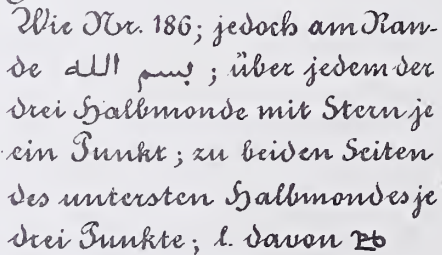 Wie Nr. 186; jedoch am Ran-
de بسم الله; über jedem der
drei Halbmonde mit Stern je
ein Punkt; zu beiden Seiten
des untersten Halbmondes je
drei Punkte; l. davon